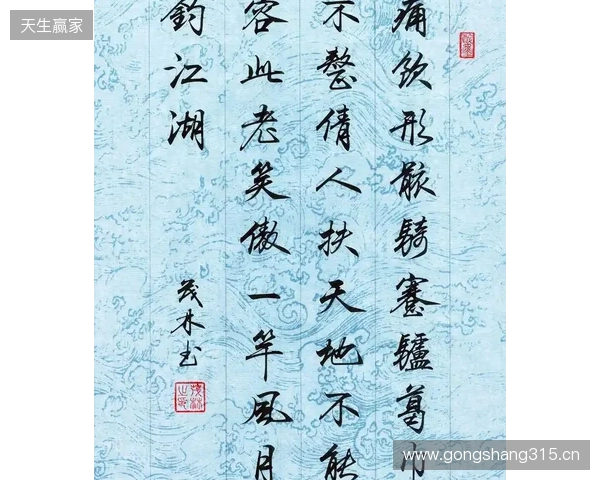 天生赢家
痛飲形骸騎蹇驢葛巾
不整倩人扶天地不能
容此老笑傲一竿風月
釣江湖
茂林书
www.gongshang315.cn